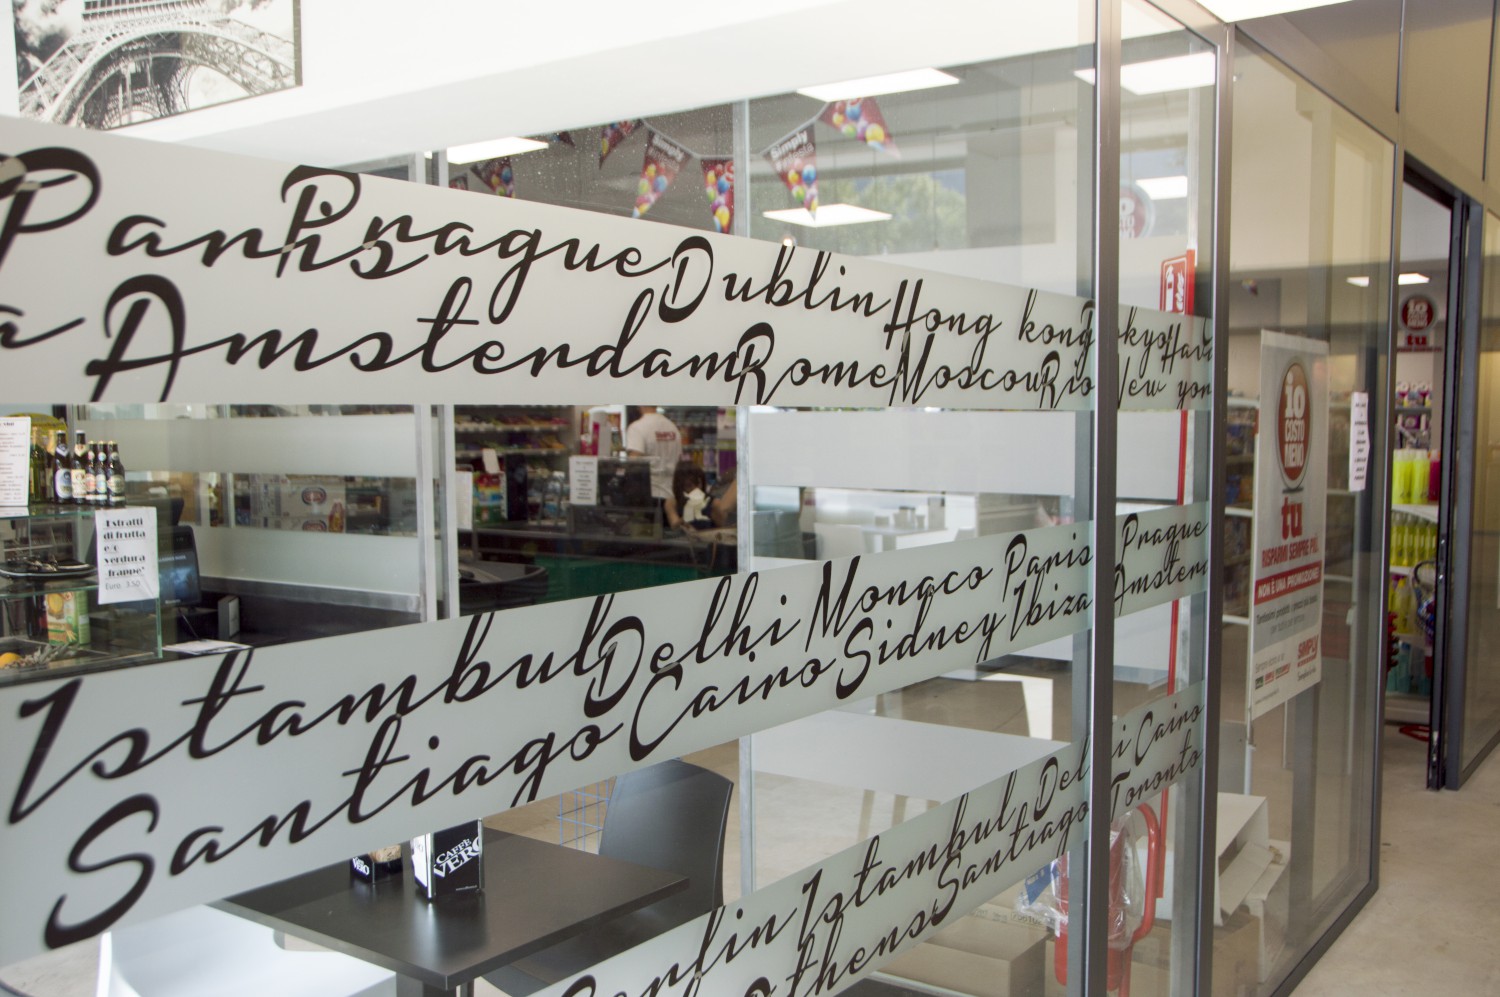 Paris Prague Dublin Hong kong okyo
Amsterdam Rome Moscou Rio New york
Istambul Delhi Monaco Paris Prague
Santiago Cairo Sidney Ibiza Amster
Istambul Delhi Cairo
Athens Santiago Toronto
Simply
Simply
Estratti
di frutta
e/o
verdura
frappe'
Euro 3.50
CAFFÈ
VERO
VERO
io
COSTO
MENO
tu
RISPARMI SEMPRE PIÙ.
NON È UNA PROMOZIONE!
SIMPLY
io
COSTO
MENO
tu